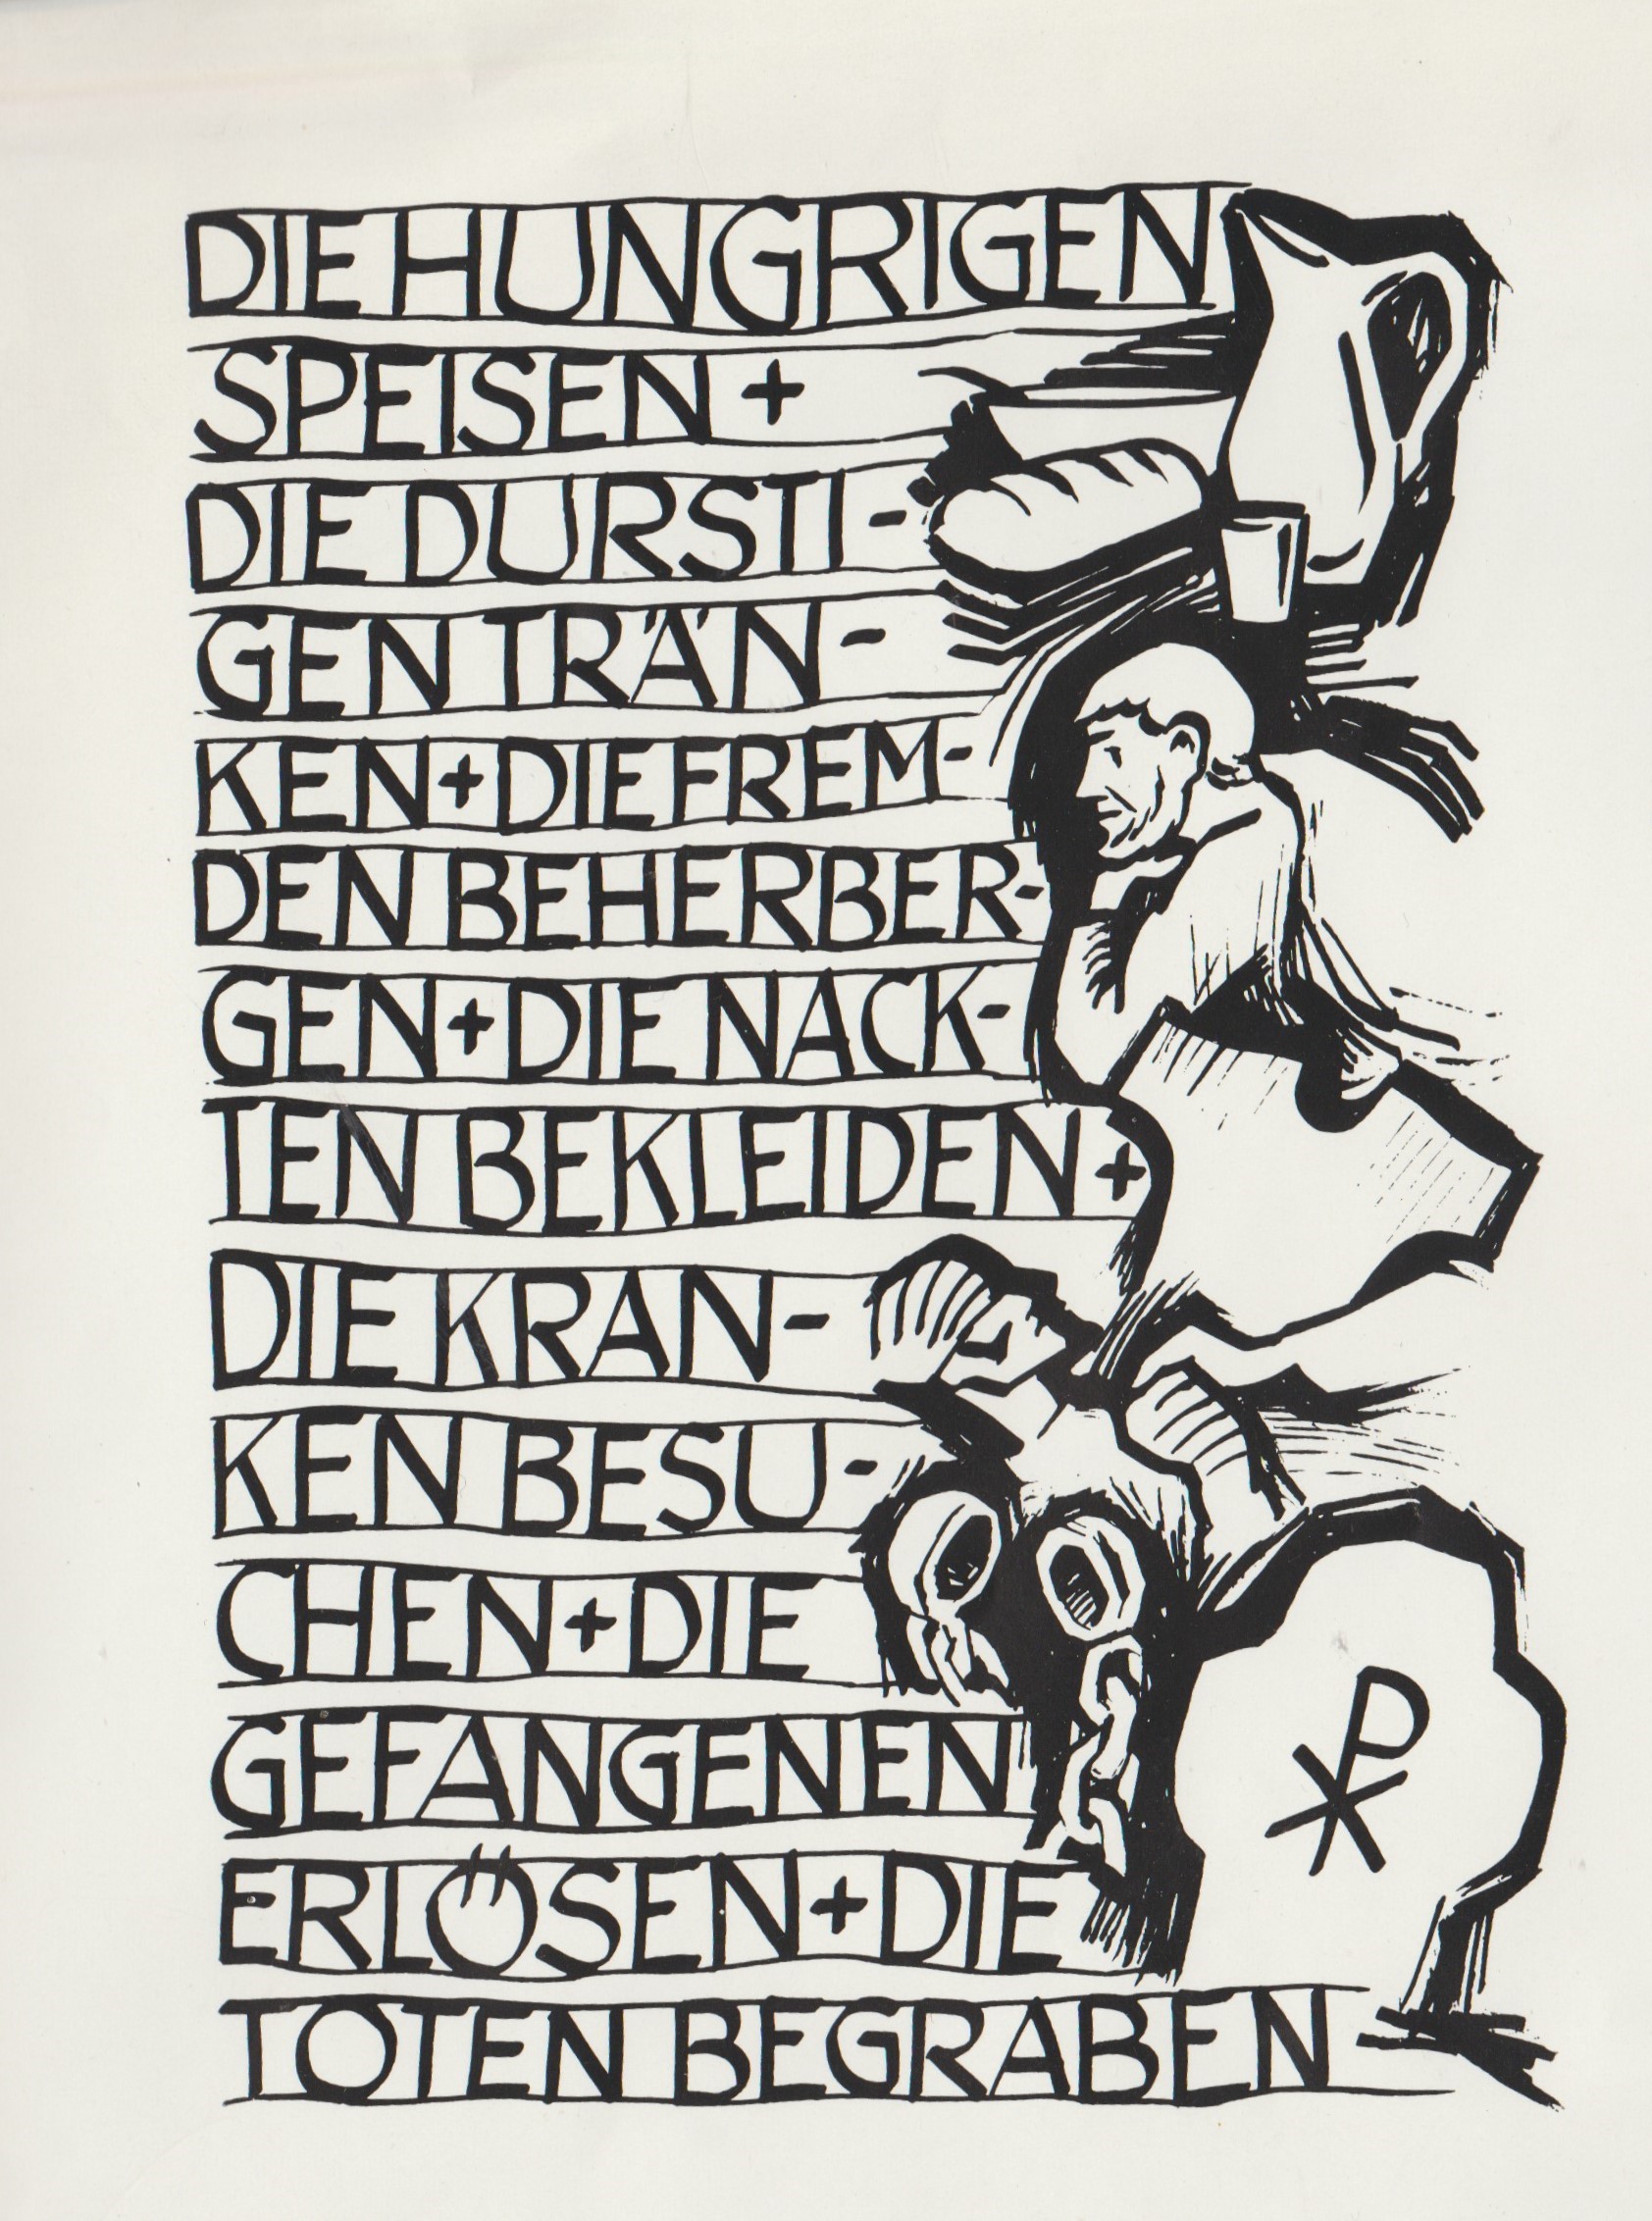 DIE HUNGRIGEN
SPEISEN +
DIE DURSTI-
GEN TRÄN-
KEN + DIE FREM-
DEN BEHERBER-
GEN + DIE NACK-
TEN BEKLEIDEN +
DIE KRAN-
KEN BESU-
CHEN + DIE
GEFANGENEN
ERLÖSEN + DIE
TOTEN BEGRABEN